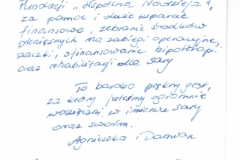 Fundacji „Wspólna Nadzieja",
za pomoc i duże wsparcie
finansowe, zebranie środków
pieniężnych na zabiegi operacyjne,
paczki, ofinansowanie hipoterapii
oraz rehabilitacji dla Sary
To bardzo piękny gest,
za który jesteśmy ogromnie
wdzięczni w imieniu Sary
oraz swoim.
Agnieszka i Damian